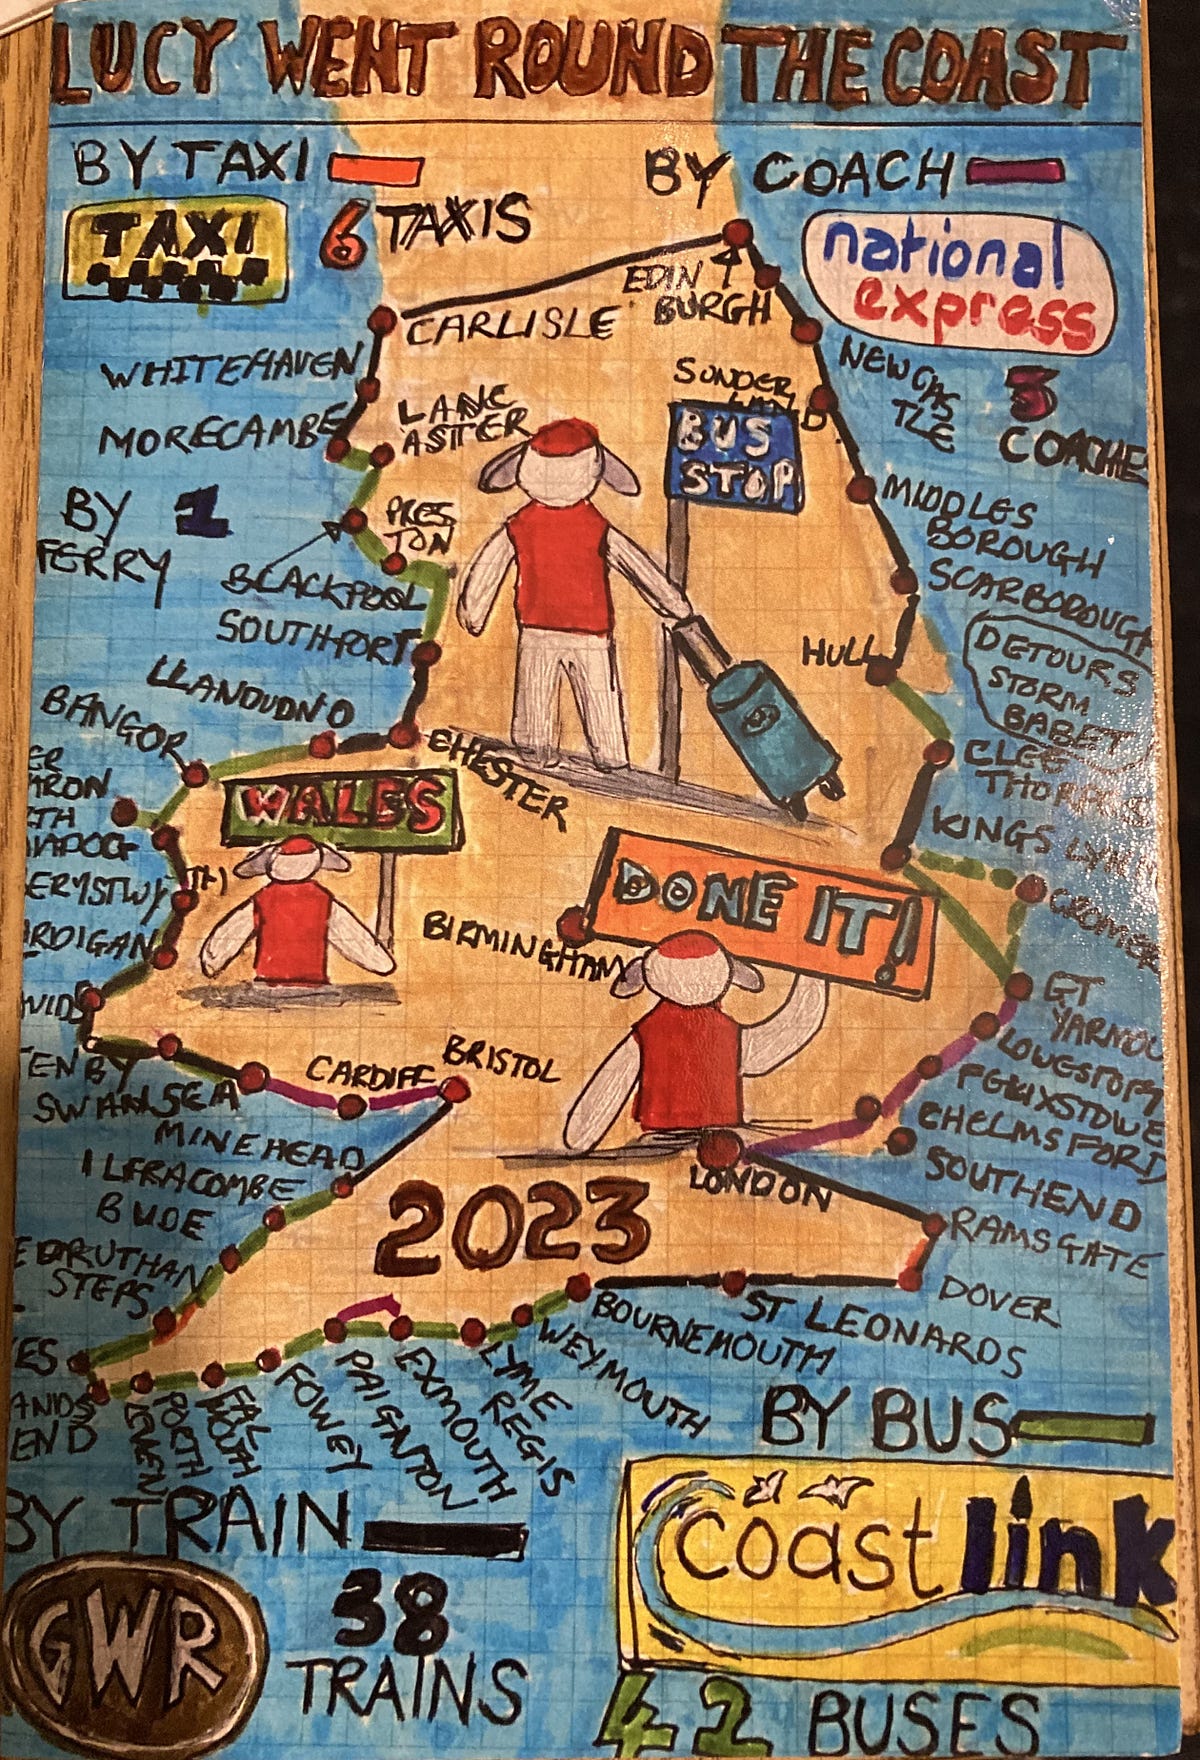 LUCY WENT ROUND THE COAST
BY TAXI
BY COACH
TAXI
6 TAXIS
national
express
EDIN
BURGH
CARLISLE
NEWCAS
TLE
3
COACHE
WHITEHAVEN
SUNDER
LAND
MORECAMBE
LANC
ASTER
BUS
STOP
MIDDLES
BOROUGH
BY 1
FERRY
PRES
TON
BLACKPOOL
SCARBOROUGH
SOUTHPORT
HULL
DETOURS
STORM
BABET
LLANDUDNO
BANGOR
CHESTER
CLEE
THORPES
ER
ARON
TH
MADOG
WALES
KINGS LYN
CROMER
ERYSTWY(TH)
DONE IT!
BIRMINGHAM
RDIGAN
GT
YARMOU
VIDS
LOWESTOFT
TENBY
CARDIFF
BRISTOL
FELIXSTOWE
SWANSEA
CHELMSFORD
MINEHEAD
SOUTHEND
ILFRACOMBE
LONDON
BUDE
2023
RAMSGATE
EDRUTHAN
STEPS
DOVER
ST LEONARDS
BOURNEMOUTH
WEYMOUTH
LYME
REGIS
EXMOUTH
PAIGNTON
FOWEY
FAL
MOUTH
PORTH
LEVEN
YES
ANDS
END
BY BUS
BY TRAIN
coastlink
GWR
38
TRAINS
42 BUSES